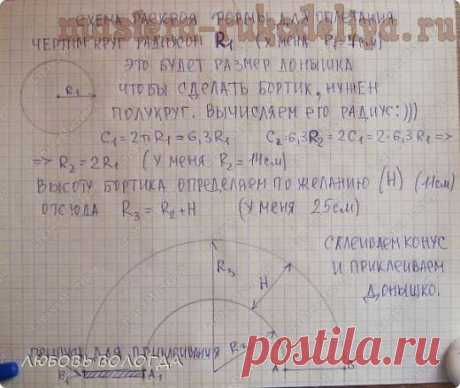 СХЕМА РАСКРОЯ ФОРМЫ ДЛЯ ОПЛЕТАНИЯ
ЧЕРТИМ КРУГ РАДИУСОМ R1 (У МЕНЯ R1=7СМ)
ЭТО БУДЕТ РАЗМЕР ДОНЫШКА
R1
ЧТОБЫ СДЕЛАТЬ БОРТИК, НУЖЕН
ПОЛУКРУГ. ВЫЧИСЛЯЕМ ЕГО РАДИУС:)))
C1=2πR1=6,3R1 C2=6,3R2=2C1=2·6,3R1=>
=> R2=2R1 (У МЕНЯ R2=14СМ)
ВЫСОТУ БОРТИКА ОПРЕДЕЛЯЕМ ПО ЖЕЛАНИЮ (H) (11СМ)
ОТСЮДА R3=R2+H (У МЕНЯ 25СМ)
СКЛЕИВАЕМ КОНУС
И ПРИКЛЕИВАЕМ
ДОНЫШКО.
R3
H
R2
ПРИПУСК ДЛЯ ПРИКЛЕИВАНИЯ
A
B
B1
A1
ЛЮБОВЬ ВОЛОГДА
postila.ru